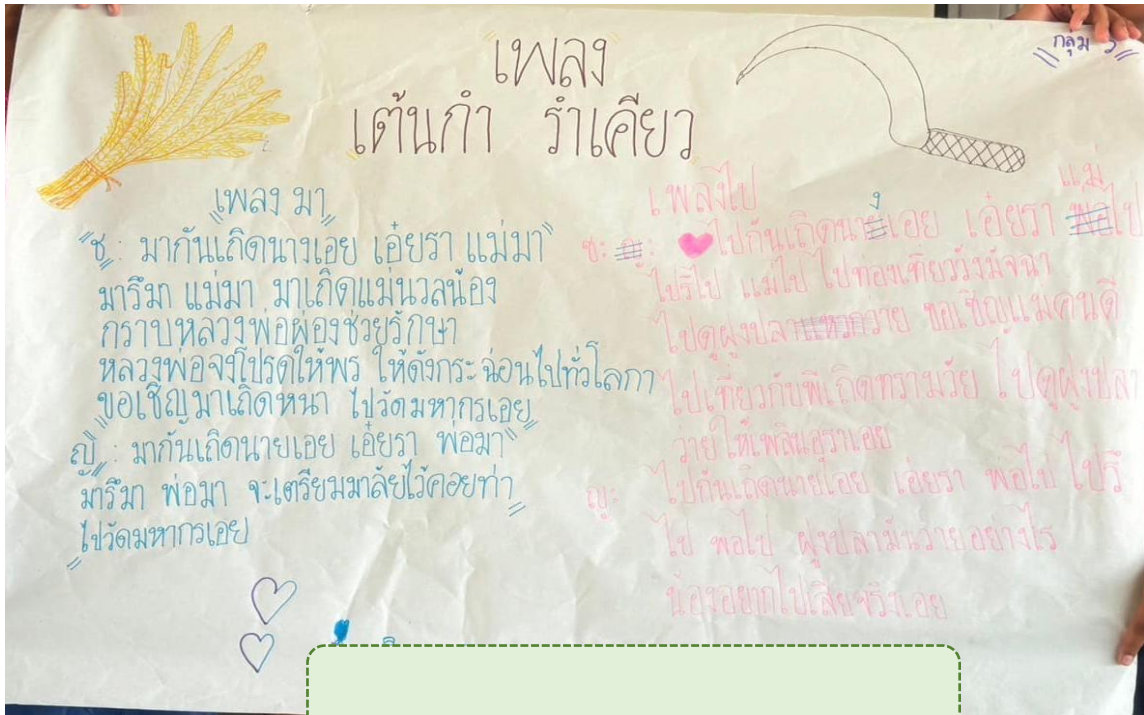 เพลง
เต้นกำ รำเคียว
กลุ่ม ๖
"เพลง มา"
"ช : มากันเถิดนางเอย เอ๋ยรา แม่มา"
มารึมา แม่มา มาเถิดแม่นวลน้อง
กราบหลวงพ่อผ่องช่วยรักษา
หลวงพ่อจงโปรดให้พร ให้ดังกระฉ่อนไปทั่วโลกา
ขอเชิญมาเถิดหนา ไปวัดมหากรเอย"
ญ : มากันเถิดนายเอย เอ๋ยรา พ่อมา"
มารึมา พ่อมา จะเตรียมมาลัยไว้คอยท่า
ไปวัดมหากรเอย
เพลงไป
ช: ไปกันเถิดนางเอย เอ๋ยรา แม่ไป
ไปรึไป แม่ไป ไปท่องเที่ยววังมัจฉา
ไปดูฝูงปลา ขอเชิญแม่คนดี
ไปเที่ยวกับพี่เถิดทรามวัย ไปดูฝูงปลา
ว่ายให้เพลินอุราเอย
ญ: ไปกันเถิดนายเอย เอ๋ยรา พ่อไป ไปรึ
ไป พ่อไป ฝูงปลามันว่ายอย่างไร
น้องอยากไปเสียจริงเอย